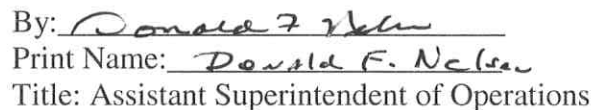 By: Donald F Nelson
Print Name: Donald F. Nelson
Title: Assistant Superintendent of Operations